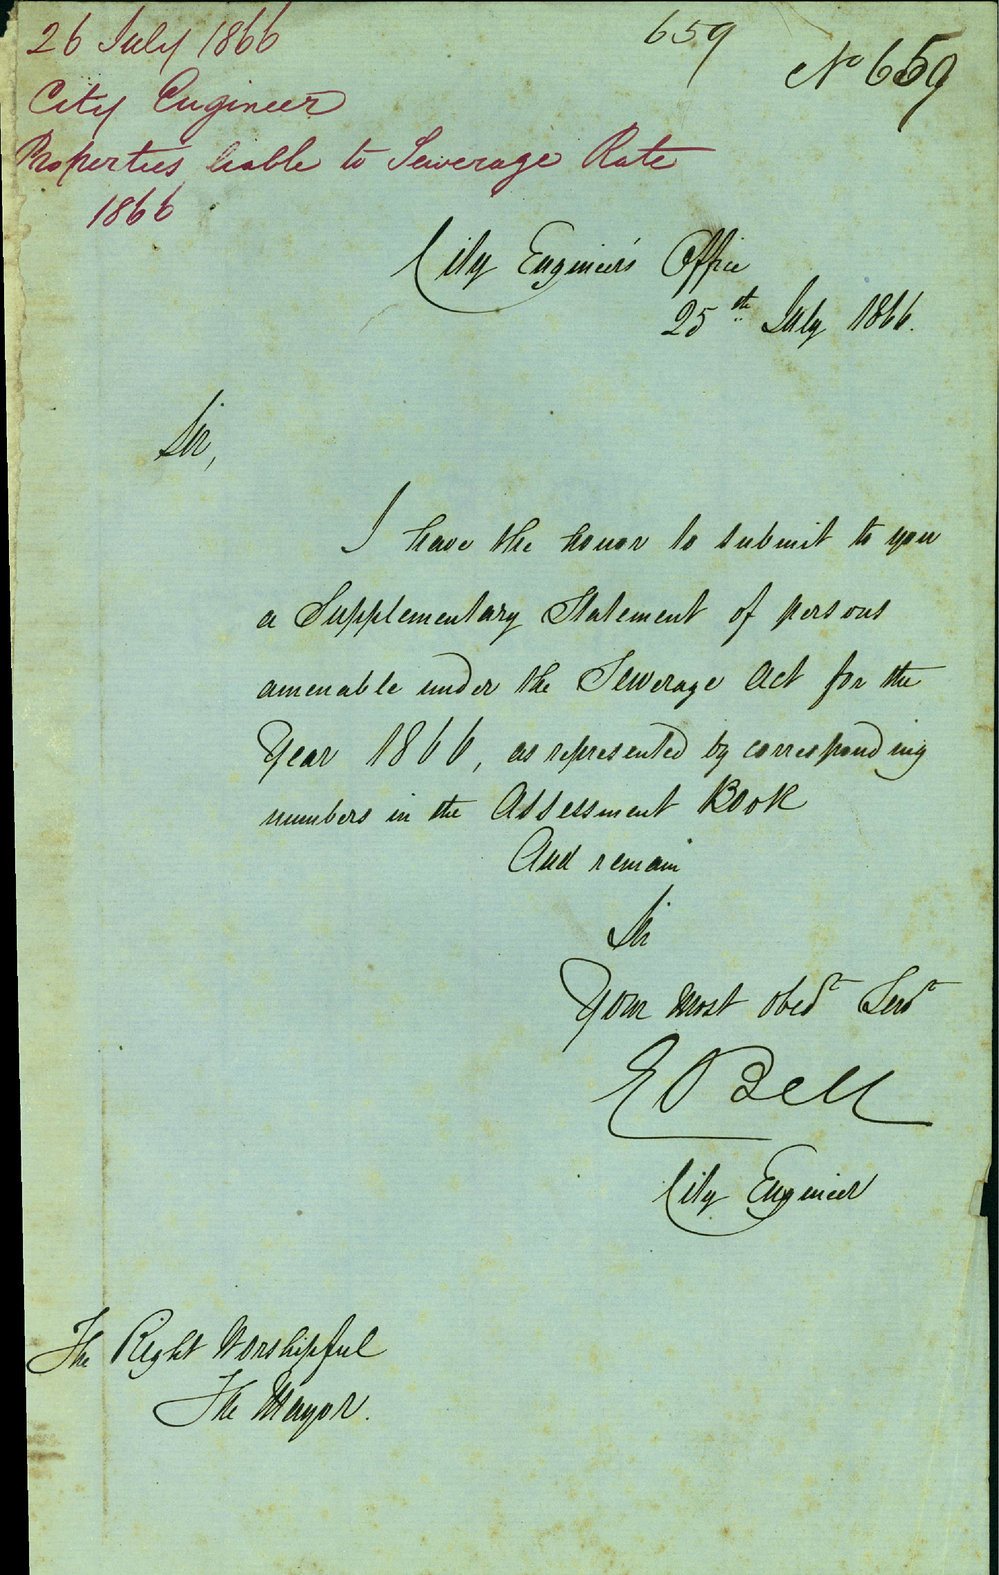 26 July 1866
City Engineer
Properties liable to Sewerage Rate
1866
659
No 659
City Engineer's Office
25th July 1866.
Sir,
I have the honor to submit to you
a Supplementary Statement of persons
amenable under the Sewerage Act for the
Year 1866, as represented by corresponding
numbers in the Assessment Book
And remain
Sir
Your most obedt Servt
E Bell
City Engineer
The Right Worshipful
The Mayor.